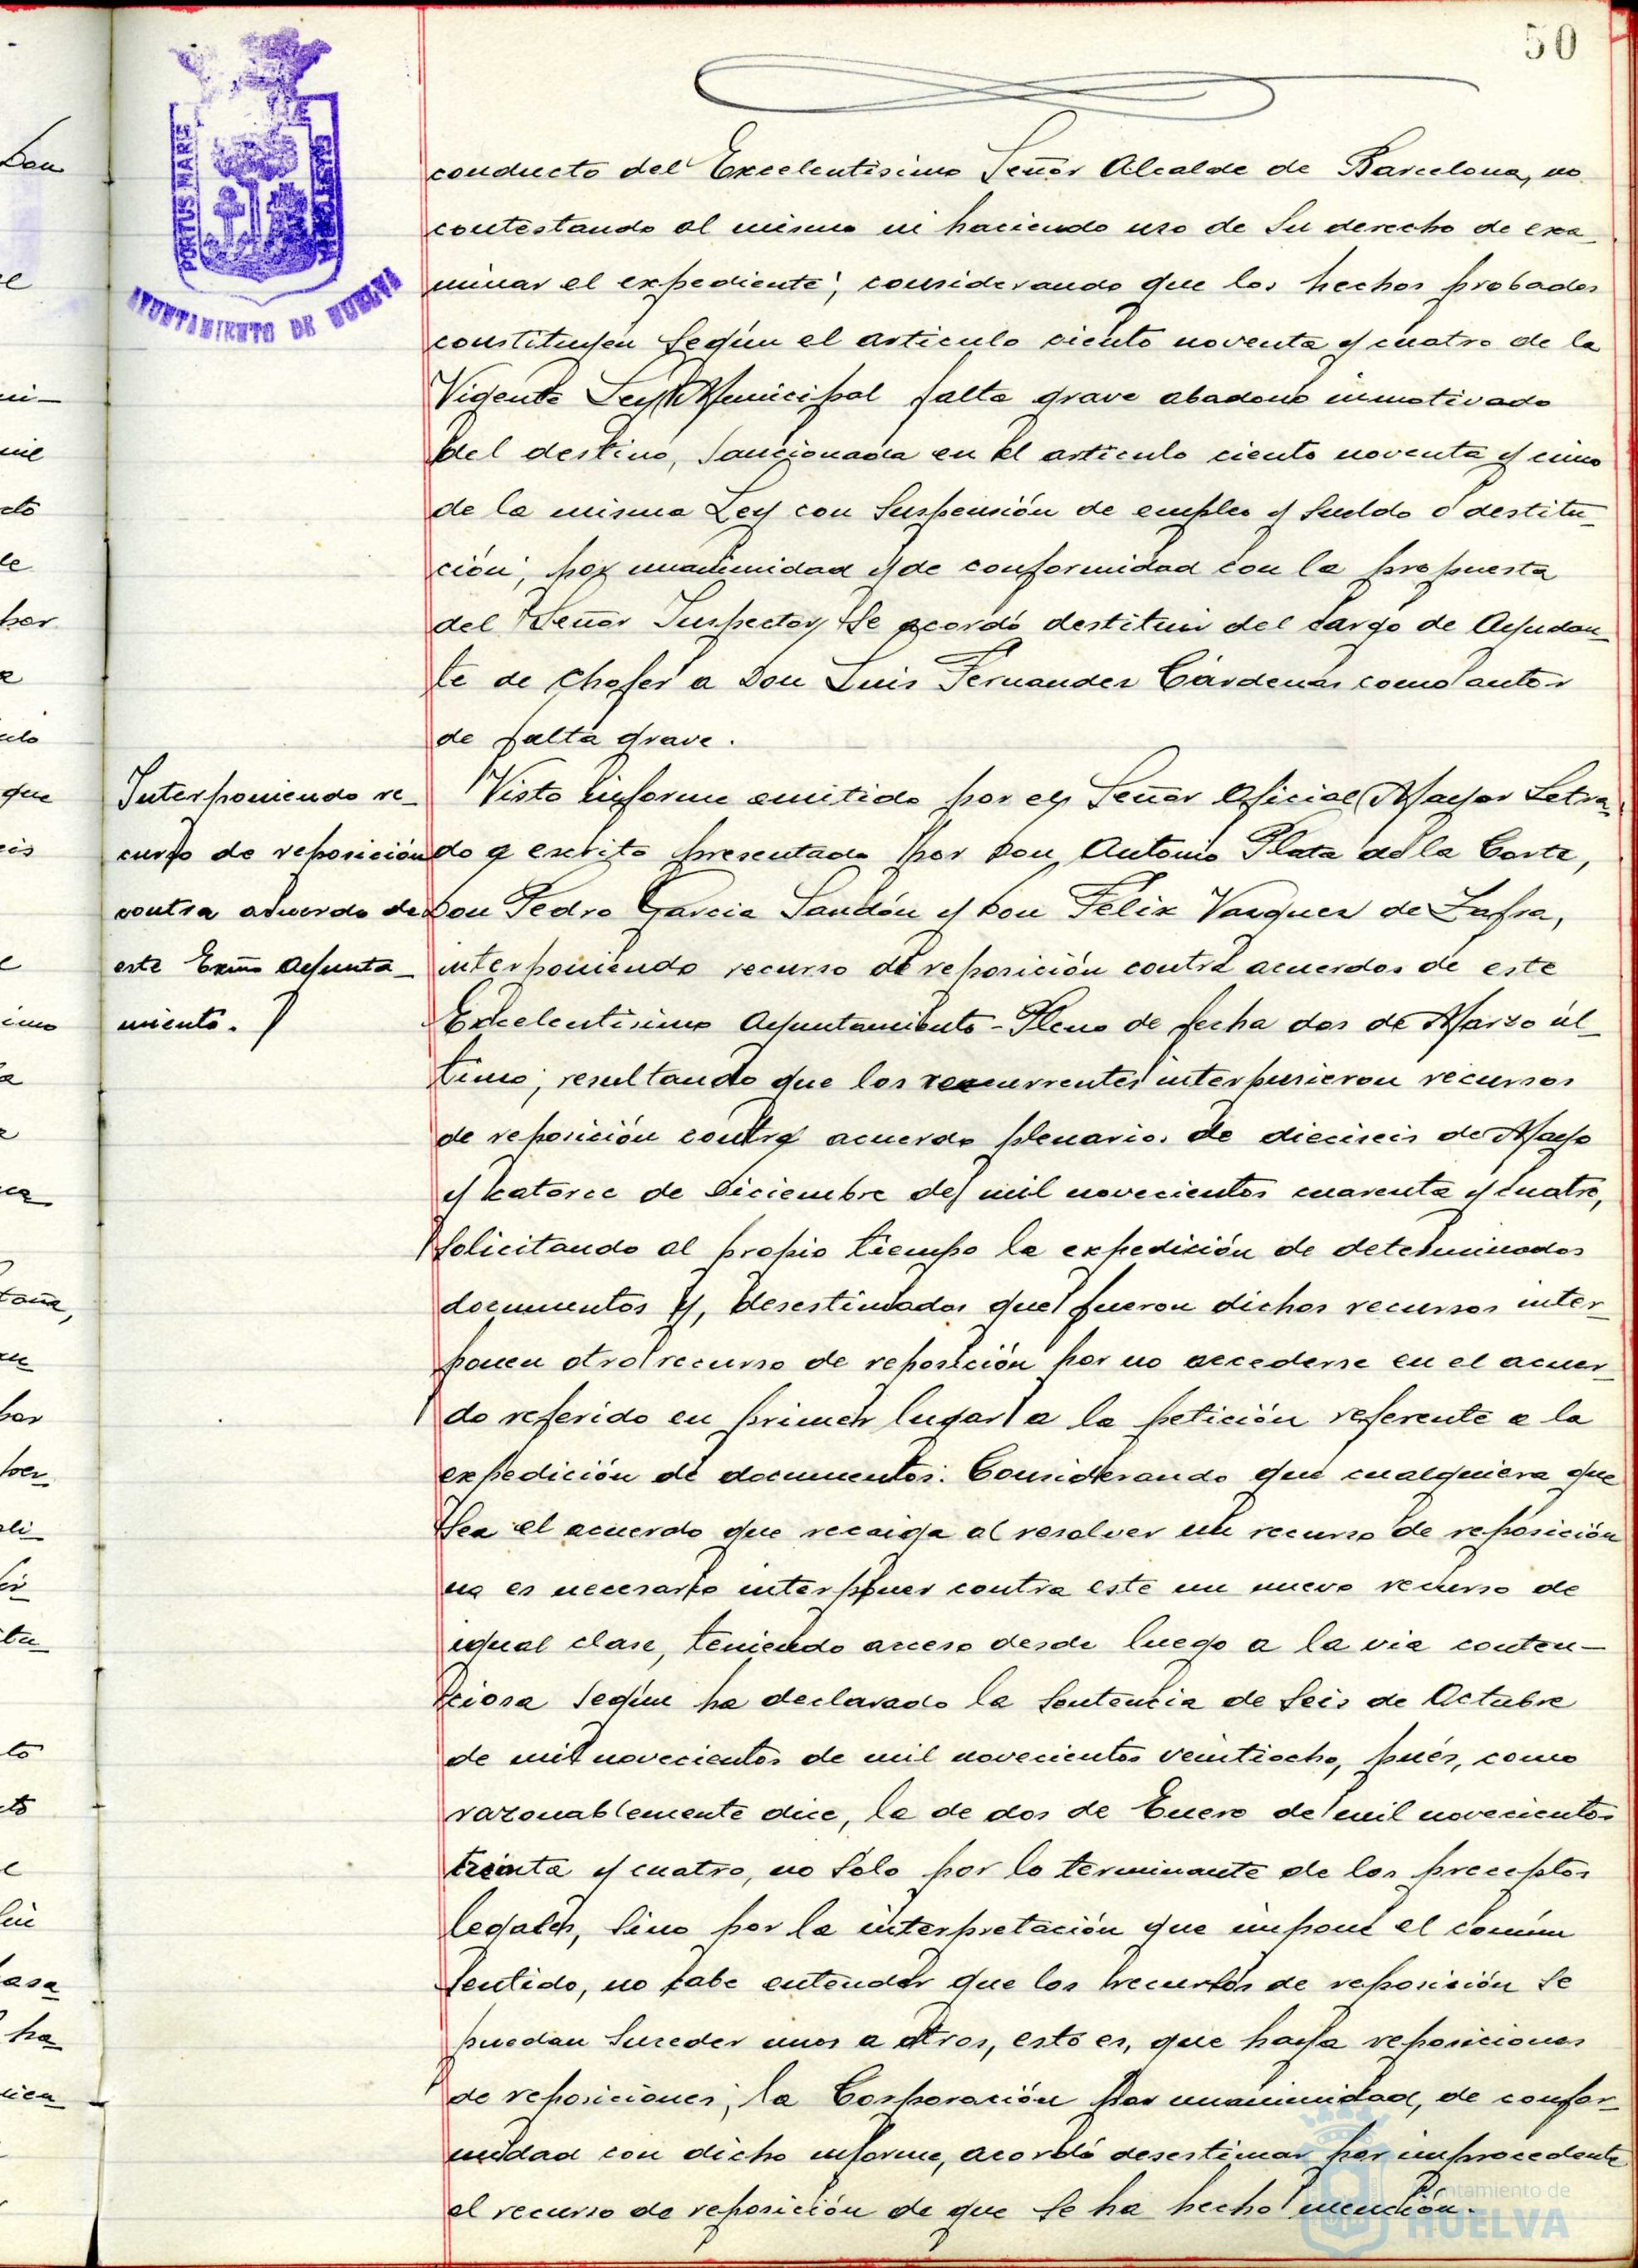 50
PORTUS MARIS
AYUNTAMIENTO DE HUELVA
conducto del Excelentisimo Señor Alcalde de Barcelona, no
contestando al mismo ni haciendo uso de su derecho de exa-
minar el expediente; considerando que los hechos probados
constituyen según el articulo ciento noventa y cuatro de la
Vigente Ley Municipal falta grave abadono inmotivado
del destino, sancionada en el articulo ciento noventa y cinco
de la misma Ley con suspensión de empleo y sueldo o destitu-
ción; por unanimidad y de conformidad con la propuesta
del Señor Inspector, se acordó destituir del cargo de Ayudan-
te de chofer a Don Luis Fernandez Cárdenas como autor
de falta grave.
Interponiendo re-
curso de reposición
contra acuerdo de
este Excmo Ayunta-
miento.
Visto informe emitido por el Señor Oficial Mayor Letra-
do a escrito presentado por Don Antonio Plata de la Corte,
Don Pedro Garcia Sandón y Don Félix Vazquez de Zafra,
interponiendo recurso de reposición contra acuerdos de este
Excelentisimo Ayuntamiento-Pleno de fecha dos de Marzo úl-
timo; resultando que los recurrentes interpusieron recursos
de reposición contra acuerdo plenarios de dieciseis de Mayo
y catorce de Diciembre de mil novecientos cuarenta y cuatro,
solicitando al propio tiempo la expedición de determinados
documentos y, desestimados que fueron dichos recursos inter-
ponen otro recurso de reposición por no accederse en el acuer-
do referido en primer lugar a la petición referente a la
expedición de documentos. Considerando que cualquiera que
sea el acuerdo que recaiga al resolver un recurso de reposición
no es necesario interponer contra este un nuevo recurso de
igual clase, teniendo acceso desde luego a la via conten-
ciosa según ha declarado la sentencia de seis de Octubre
de mil novecientos de mil novecientos veintiocho, pués, como
razonablemente dice, la de dos de Enero de mil novecientos
treinta y cuatro, no sólo por lo terminante de los preceptos
legales, sino por la interpretación que impone el común
sentido, no cabe entender que los recursos de reposición se
puedan suceder unos a otros, esto es, que haya reposiciones
de reposiciones; la Corporación por unanimidad, de confor-
midad con dicho informe, acordó desestimar por improcedente
el recurso de reposición de que se ha hecho mención.
Ayuntamiento de
HUELVA